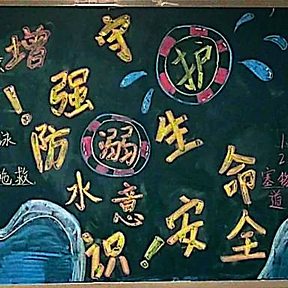 增强防溺水意识!
守护生命安全!
泳
施救
1
2
塞
道